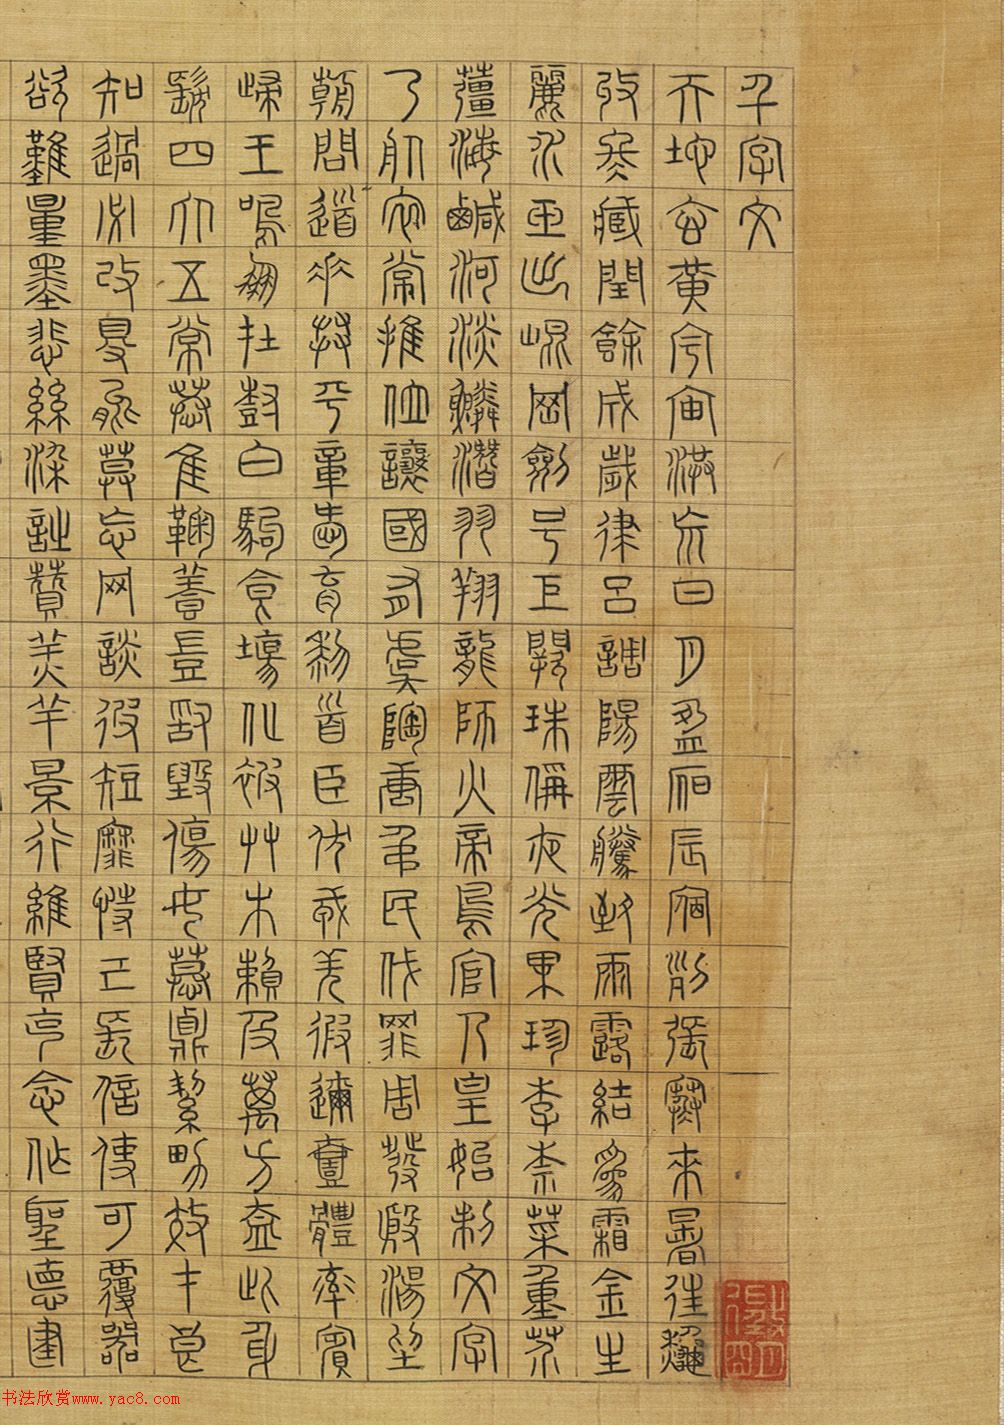 千字文
天地玄黃宇宙洪荒日月盈昃辰宿列張寒來暑往秋
收冬藏閏餘成歲律呂調陽雲騰致雨露結為霜金生
麗水玉出崐岡劍号巨闕珠稱夜光果珍李柰菜重芥
薑海鹹河淡鱗潛羽翔龍師火帝鳥官人皇始制文字
乃服衣常推位讓國有虞陶唐弔民伐罪周發殷湯坐
朝問道垂拱平章愛育黎首臣伏戎羌遐邇壹體率賓
歸王鳴鳳在樹白駒食場化被艸木賴及萬方盍此身
髮四大五常恭惟鞠養豈敢毀傷女慕貞絜男效才良
知過必改得能莫忘罔談彼短靡恃己長信使可覆器
欲難量墨悲絲染詩贊羔羊景行維賢克念作聖德建
书法欣赏www.yac8.com